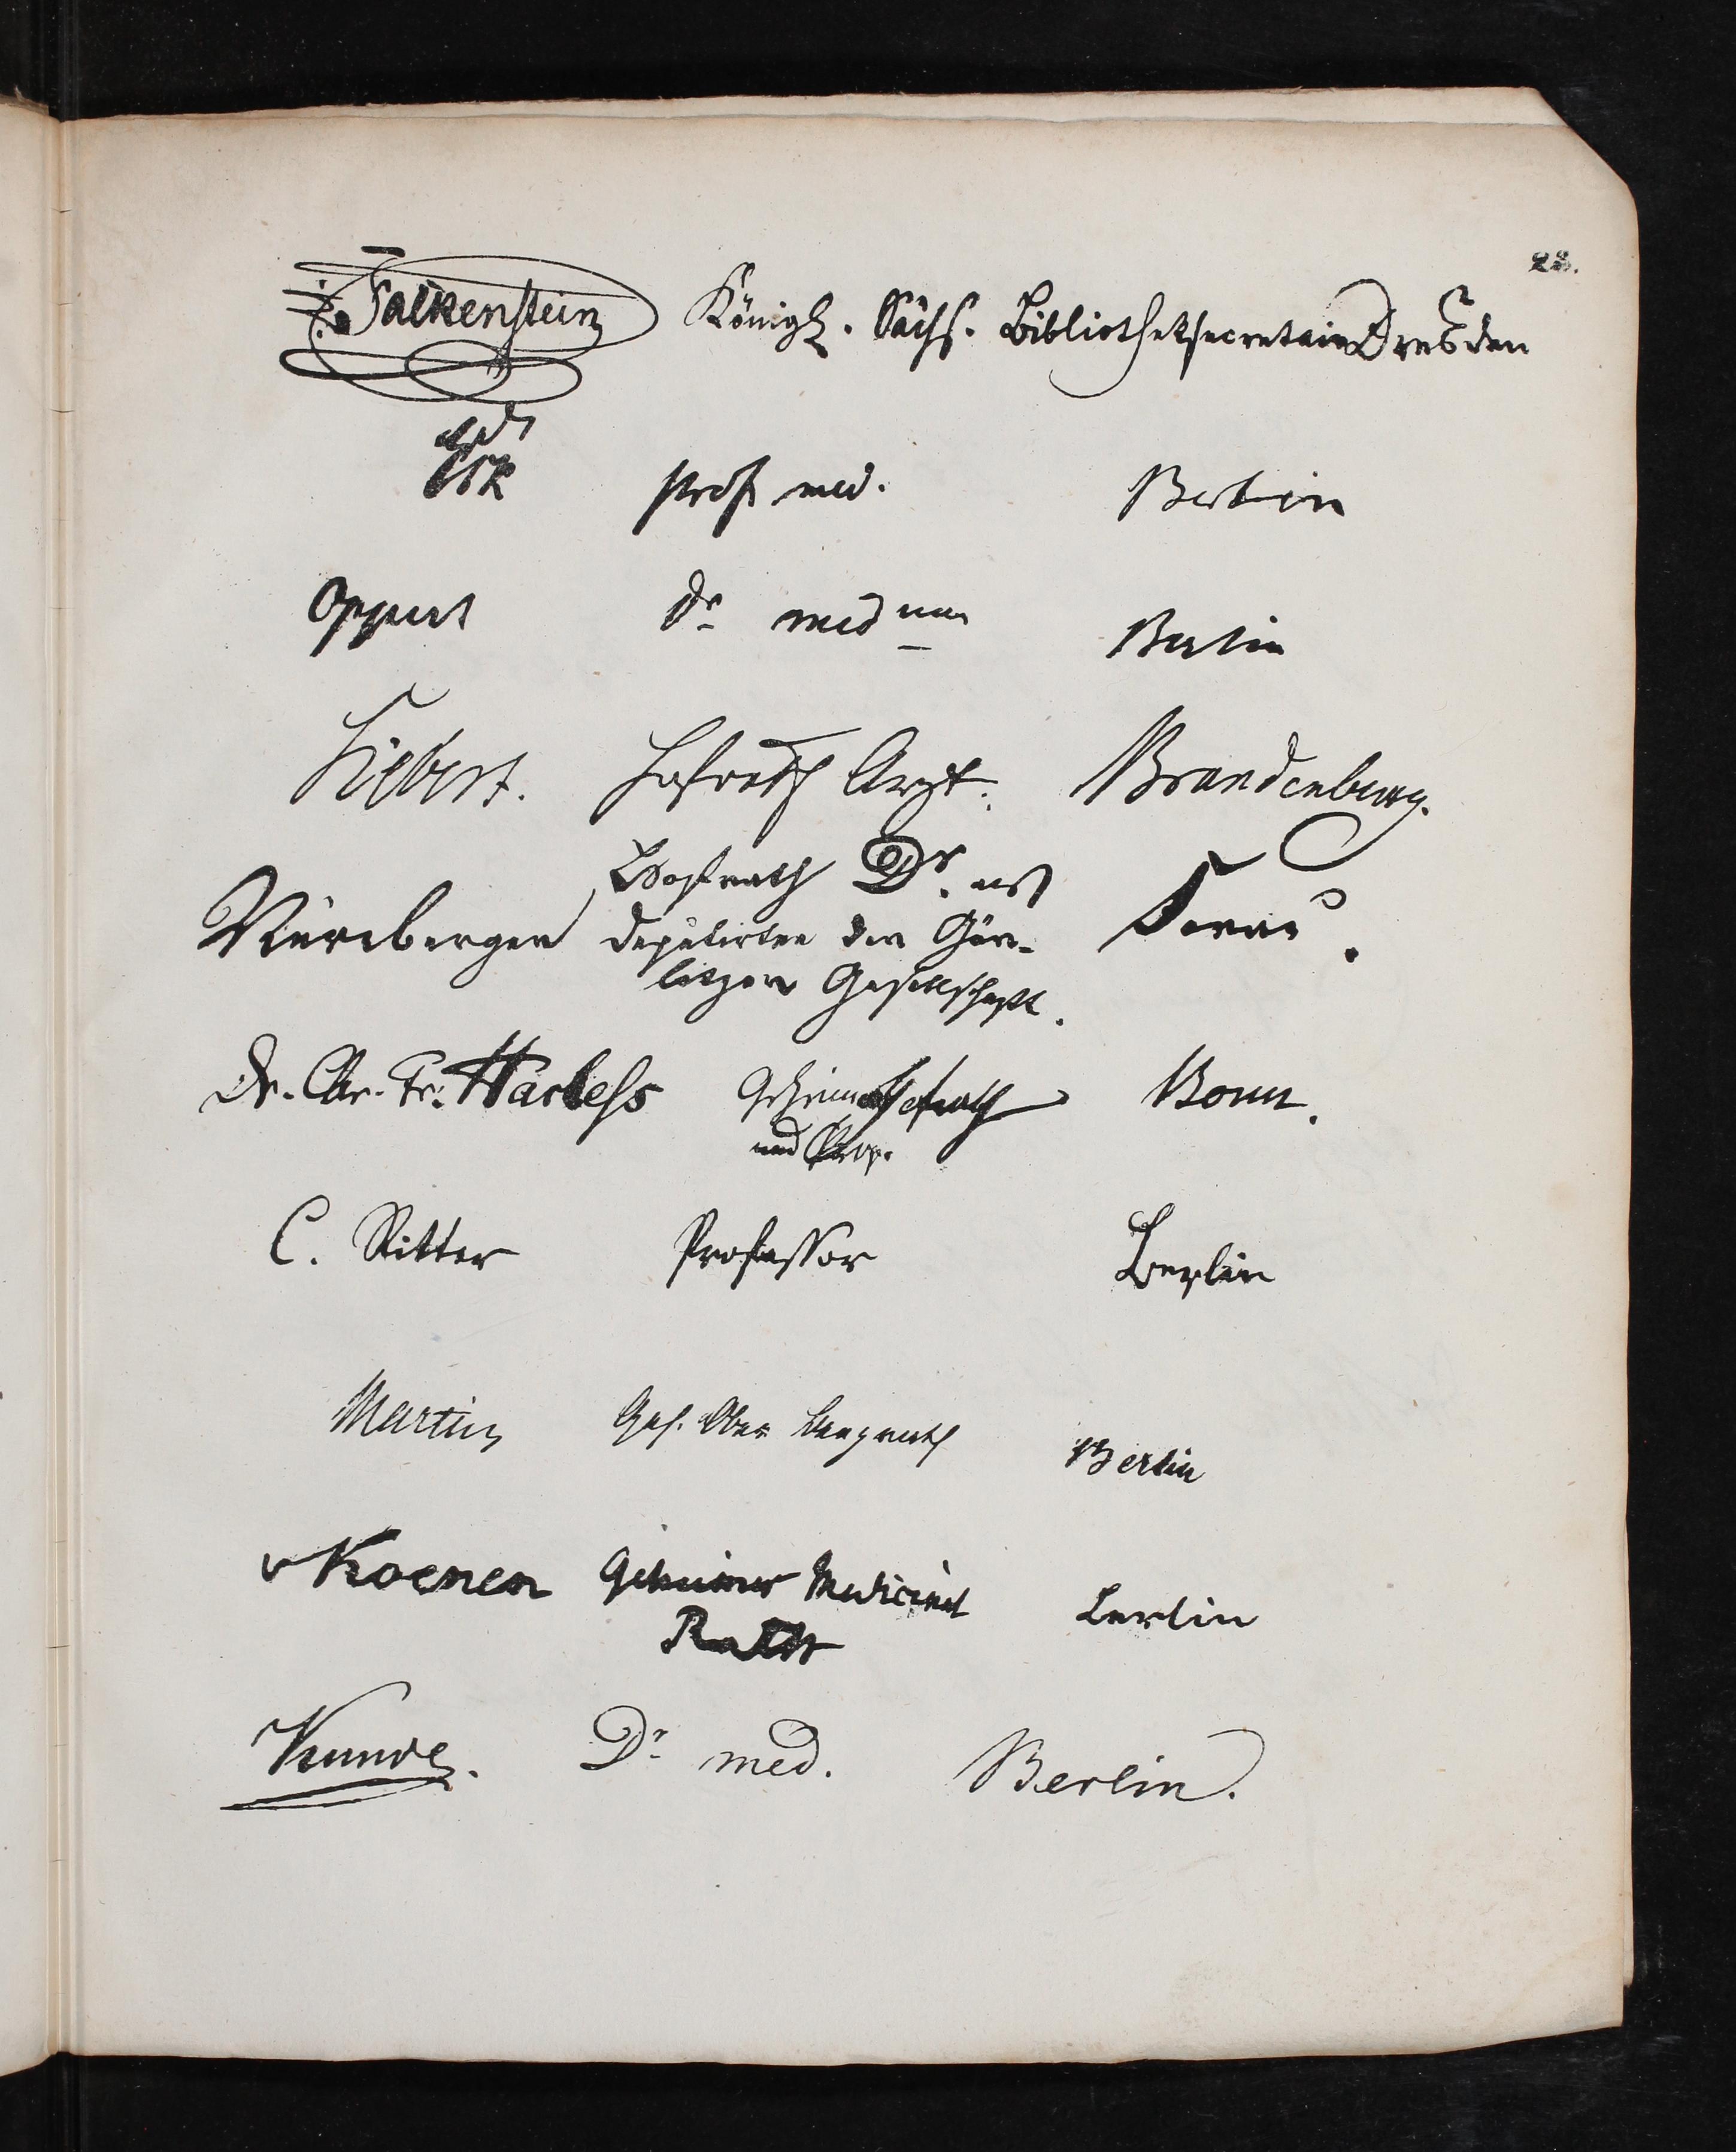 23.
Falkenstein Königl. Sächs. Bibliotheksecretair Dresden
Prof med. Berlin
Oppert Dr med Berlin
Hofrath Arzt. Brandenburg.
Hofrath Dr. als
Nürnberger Deputirter der Gör-
litzer Gesellschaft. Sorau.
Dr. Chr. Fr. Harless Geheim. Hofrath Bonn.
und Prof.
C. Ritter Professor Berlin
Martins Geh. Ober Bergrath Berlin
v Koenen Geheimer Medicinal Berlin
Rath
Kunde. Dr med. Berlin.